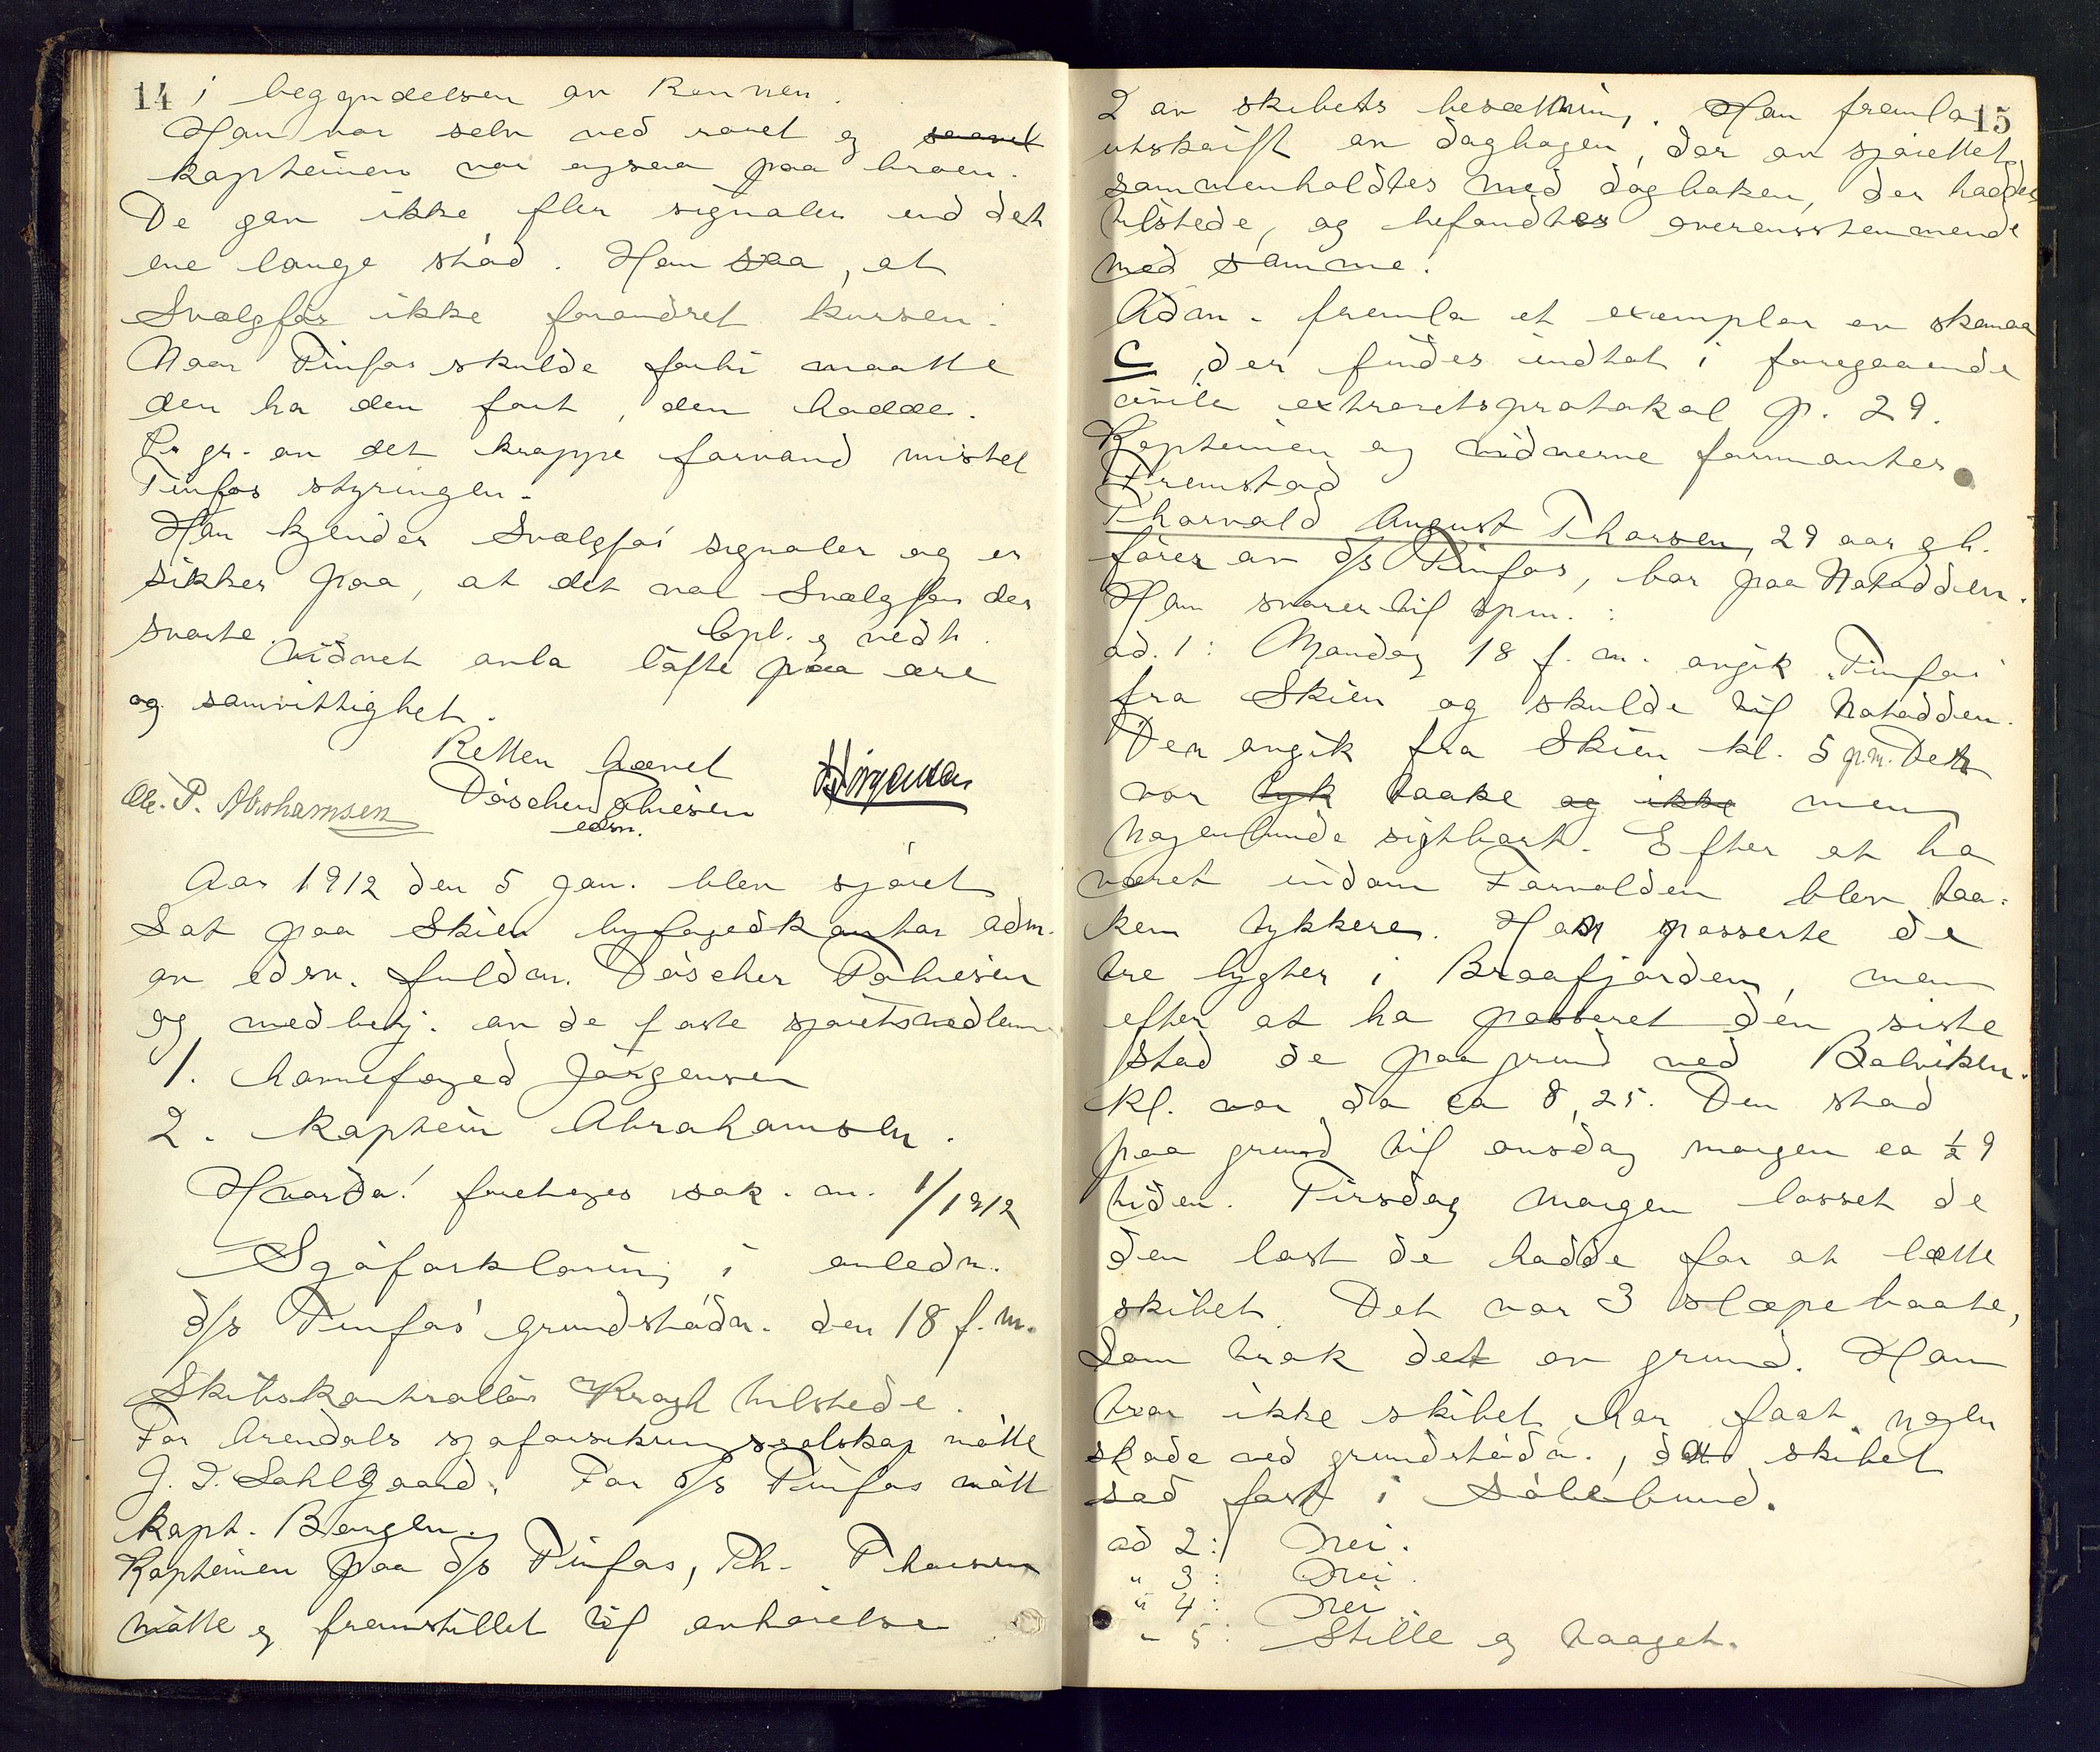 14 i begyndelsen av Rennen.
Han var selv ved roret og svaret
kapteinen var ogsaa paa broen.
De gav ikke fler signaler end det
ene lange stød. Han saa, at
Svælgfos ikke forandret kursen.
Naar Tinfos skulde forbi maatte
den ha den fart, den hadde.
Pr gr. av det krappe farvand mistet
Tinfos styringen.
Han kjender Svælgfos signaler og er
sikker paa, at det var Svælgfos der
svarte. Opl. og vedt.
Vidnet avla løfte paa ære
og samvittighet.
Retten hævet
Ole. P. Abrahamsen Døscher Tobiesen Jørgensen
edsv.
Aar 1912 den 5 jan. blev sjøret
sat paa Skien byfogedkontor adm.
av edsv. fuldm. Døscher Tobiesen
og medbetj. av de faste sjøretsmedlem
1. havnefoged Jørgensen
2. kaptein Abrahamsen.
Hvorda! foretoges sak. nr. 1/1912
Sjøforklaring i anledn.
d/s Tinfos' grundstødn. den 18 f. m.
Skibskontrollør Kragh tilstede.
For Arendals sjøforsikringsselskap møtte
J. I. Dahlgaard. For d/s Tinfos møtt
kapt. Bergen.
Kapteinen paa d/s Tinfos, Th. Thorsen
møtte og fremstillet til avhørelse
15
2 av skibets besætning. Han fremla
utskrift av dagbogen, der av sjørettet
sammenholdtes med dagboken, der haddes
tilstede, og befandtes overensstemmende
med samme.
Adm. fremla et exemplar av skema
C, der findes indtat i foregaaende
civile extraretsprotokol p. 29.
Kapteinen og vidnerne formantes.
Fremstod
Thorvald August Thorsen, 29 aar gh.
fører av d/s Tinfos, bor paa Notodden.
Han svarer til spm. :
ad. 1: Mandag 18 f. m. avgik Tinfos
fra Skien og skulde til Notodden.
Den avgik fra Skien kl. 5 pm. Det
var tyk taake og ikke men
nogenlunde sigtbart. Efter at ha
været indom Farvolden blev taa-
ken tykkere. Han passerte de
tre lygter i Braafjorden, men
efter at ha passeret den siste
stod de paa grund ved Balviken.
Kl. var da ca 8,25. Den stod
paa grund til onsdag morgen ca ½ 9
tiden. Tirsdag morgen losset de
den last de hadde for at lette
skibet. Det var 3 slæpebaate,
som trak det av grund. Han
tror ikke skibet har faat nogen
skade ved grundstødn., da skibet
sad fast i sølebund.
ad 2: Nei.
" 3: Nei.
" 4: Nei.
" 5: Stille og taaget.